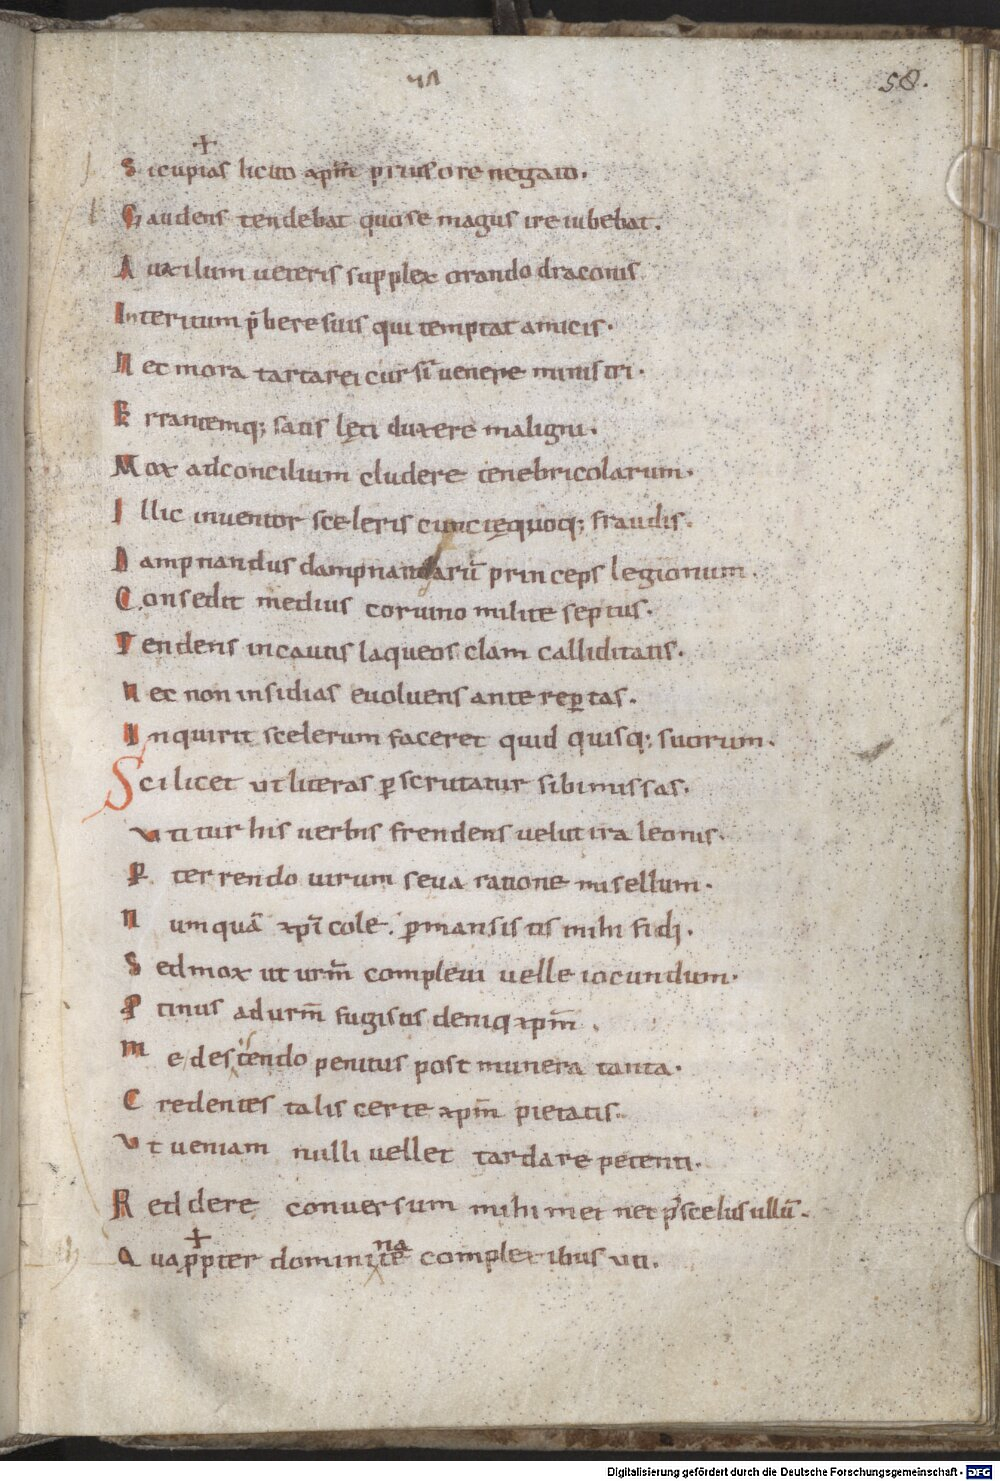 58.
Si cupias licito xpm̅ prius ore negato.
Gaudens tendebat quo se magus ire iubebat.
Auxilium ueteris supplex orando draconis
Interitum p̄bere suis qui temptat amicis.
Nec mora tartarei cursī uenere ministri.
Errantemq; satis lęti duxere maligni.
Mox ad concilium cludere tenebricolarum.
Illic inuentor sceleris cunctęquoq; fraudis.
Dampnandus dampnandarū princeps legionum.
Consedit medius coruino milite septus.
Tendens incautis laqueos clam calliditatis.
Nec non insidias euoluens ante rep̱tas.
Inquirit scelerum faceret quid quisq; suorum.
Scilicet ut literas p̱scrutatur sibi missas.
Vtitur his uerbis frendens uelut ira leonis.
P̱terrendo uirum seua ratione misellum.
Numquā xp̅icole. p̱mansistis mihi fidi.
Sed mox ut urm̅ compleui uelle iocundum.
P̱tinus ad urm̅ fugistis deniq xpm̅.
Me descendo penitus post munera tanta.
Credentes talis certe xpm̅ pietatis.
Vt ueniam nulli uellet tardare petenti.
Reddere conuersum mihimet nec p̱ scelus ullū.
Quapp̱ter domini te na complexibus uti.
Digitalisierung gefördert durch die Deutsche Forschungsgemeinschaft - DFG